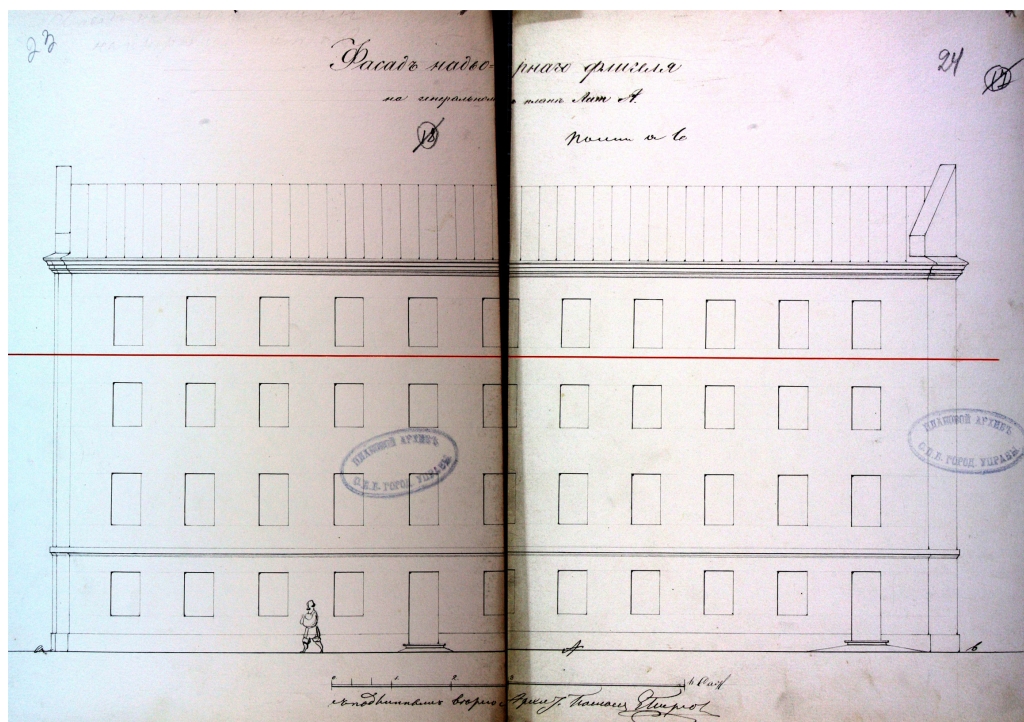 23
24
Фасадъ надворнаго флигеля
на генеральномъ планѣ Лит А.
18
по лин а в
ПЛАНОВОЙ АРХИВЪ
С.П.Б. ГОРОД. УПРАВЫ
ПЛАНОВОЙ АРХИВЪ
С.П.Б. ГОРОД. УПРАВЫ
а
А
в
0 1 2 3
Съ подлиннымъ вѣрно